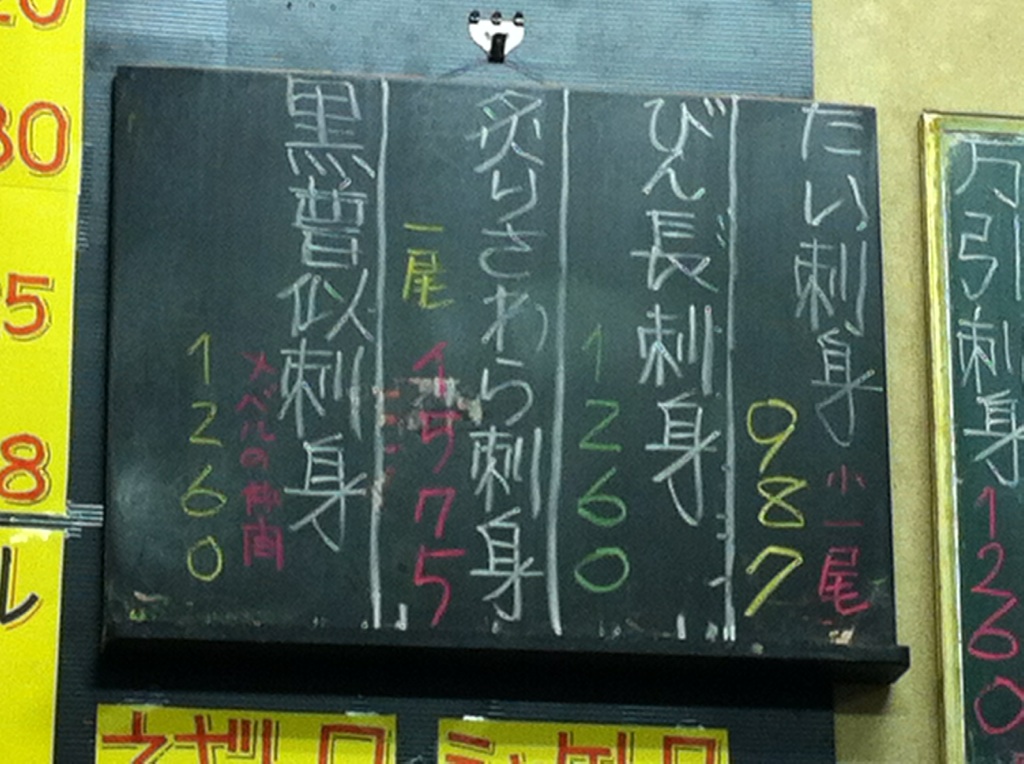 たい刺身
小一尾
987
びん長刺身
1260
炙りさわら刺身
一尾
75
黒曽以刺身
メバルの仲間
1260
方引刺身
1260
80
5
8